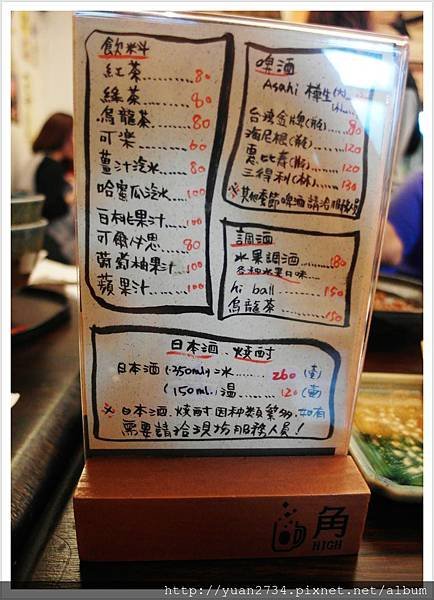 飲料
紅茶........80
綠茶........80
烏龍茶......80
可樂........60
薑汁汽水....80
哈蜜瓜汽水...100
白桃果汁....100
可爾必思....80
葡萄柚果汁..100
蘋果汁......100
啤酒
Asahi 樽生
台灣金牌(瓶)....90
海尼根(瓶)......120
惠比壽(瓶)......120
三得利(杯)......130
※其他季節啤酒請洽服務員
調酒
水果調酒......180
各種水果口味....
hi ball......150
烏龍茶......150
日本酒、燒酎
日本酒(350ml)冰...... 260 (壺)
(150ml)溫...... 120 (壺)
※日本酒、燒酎因种類繁多,如有
需要請洽現場服務人員!
角
HIGH
http://yuan2734.pixnet.net/album